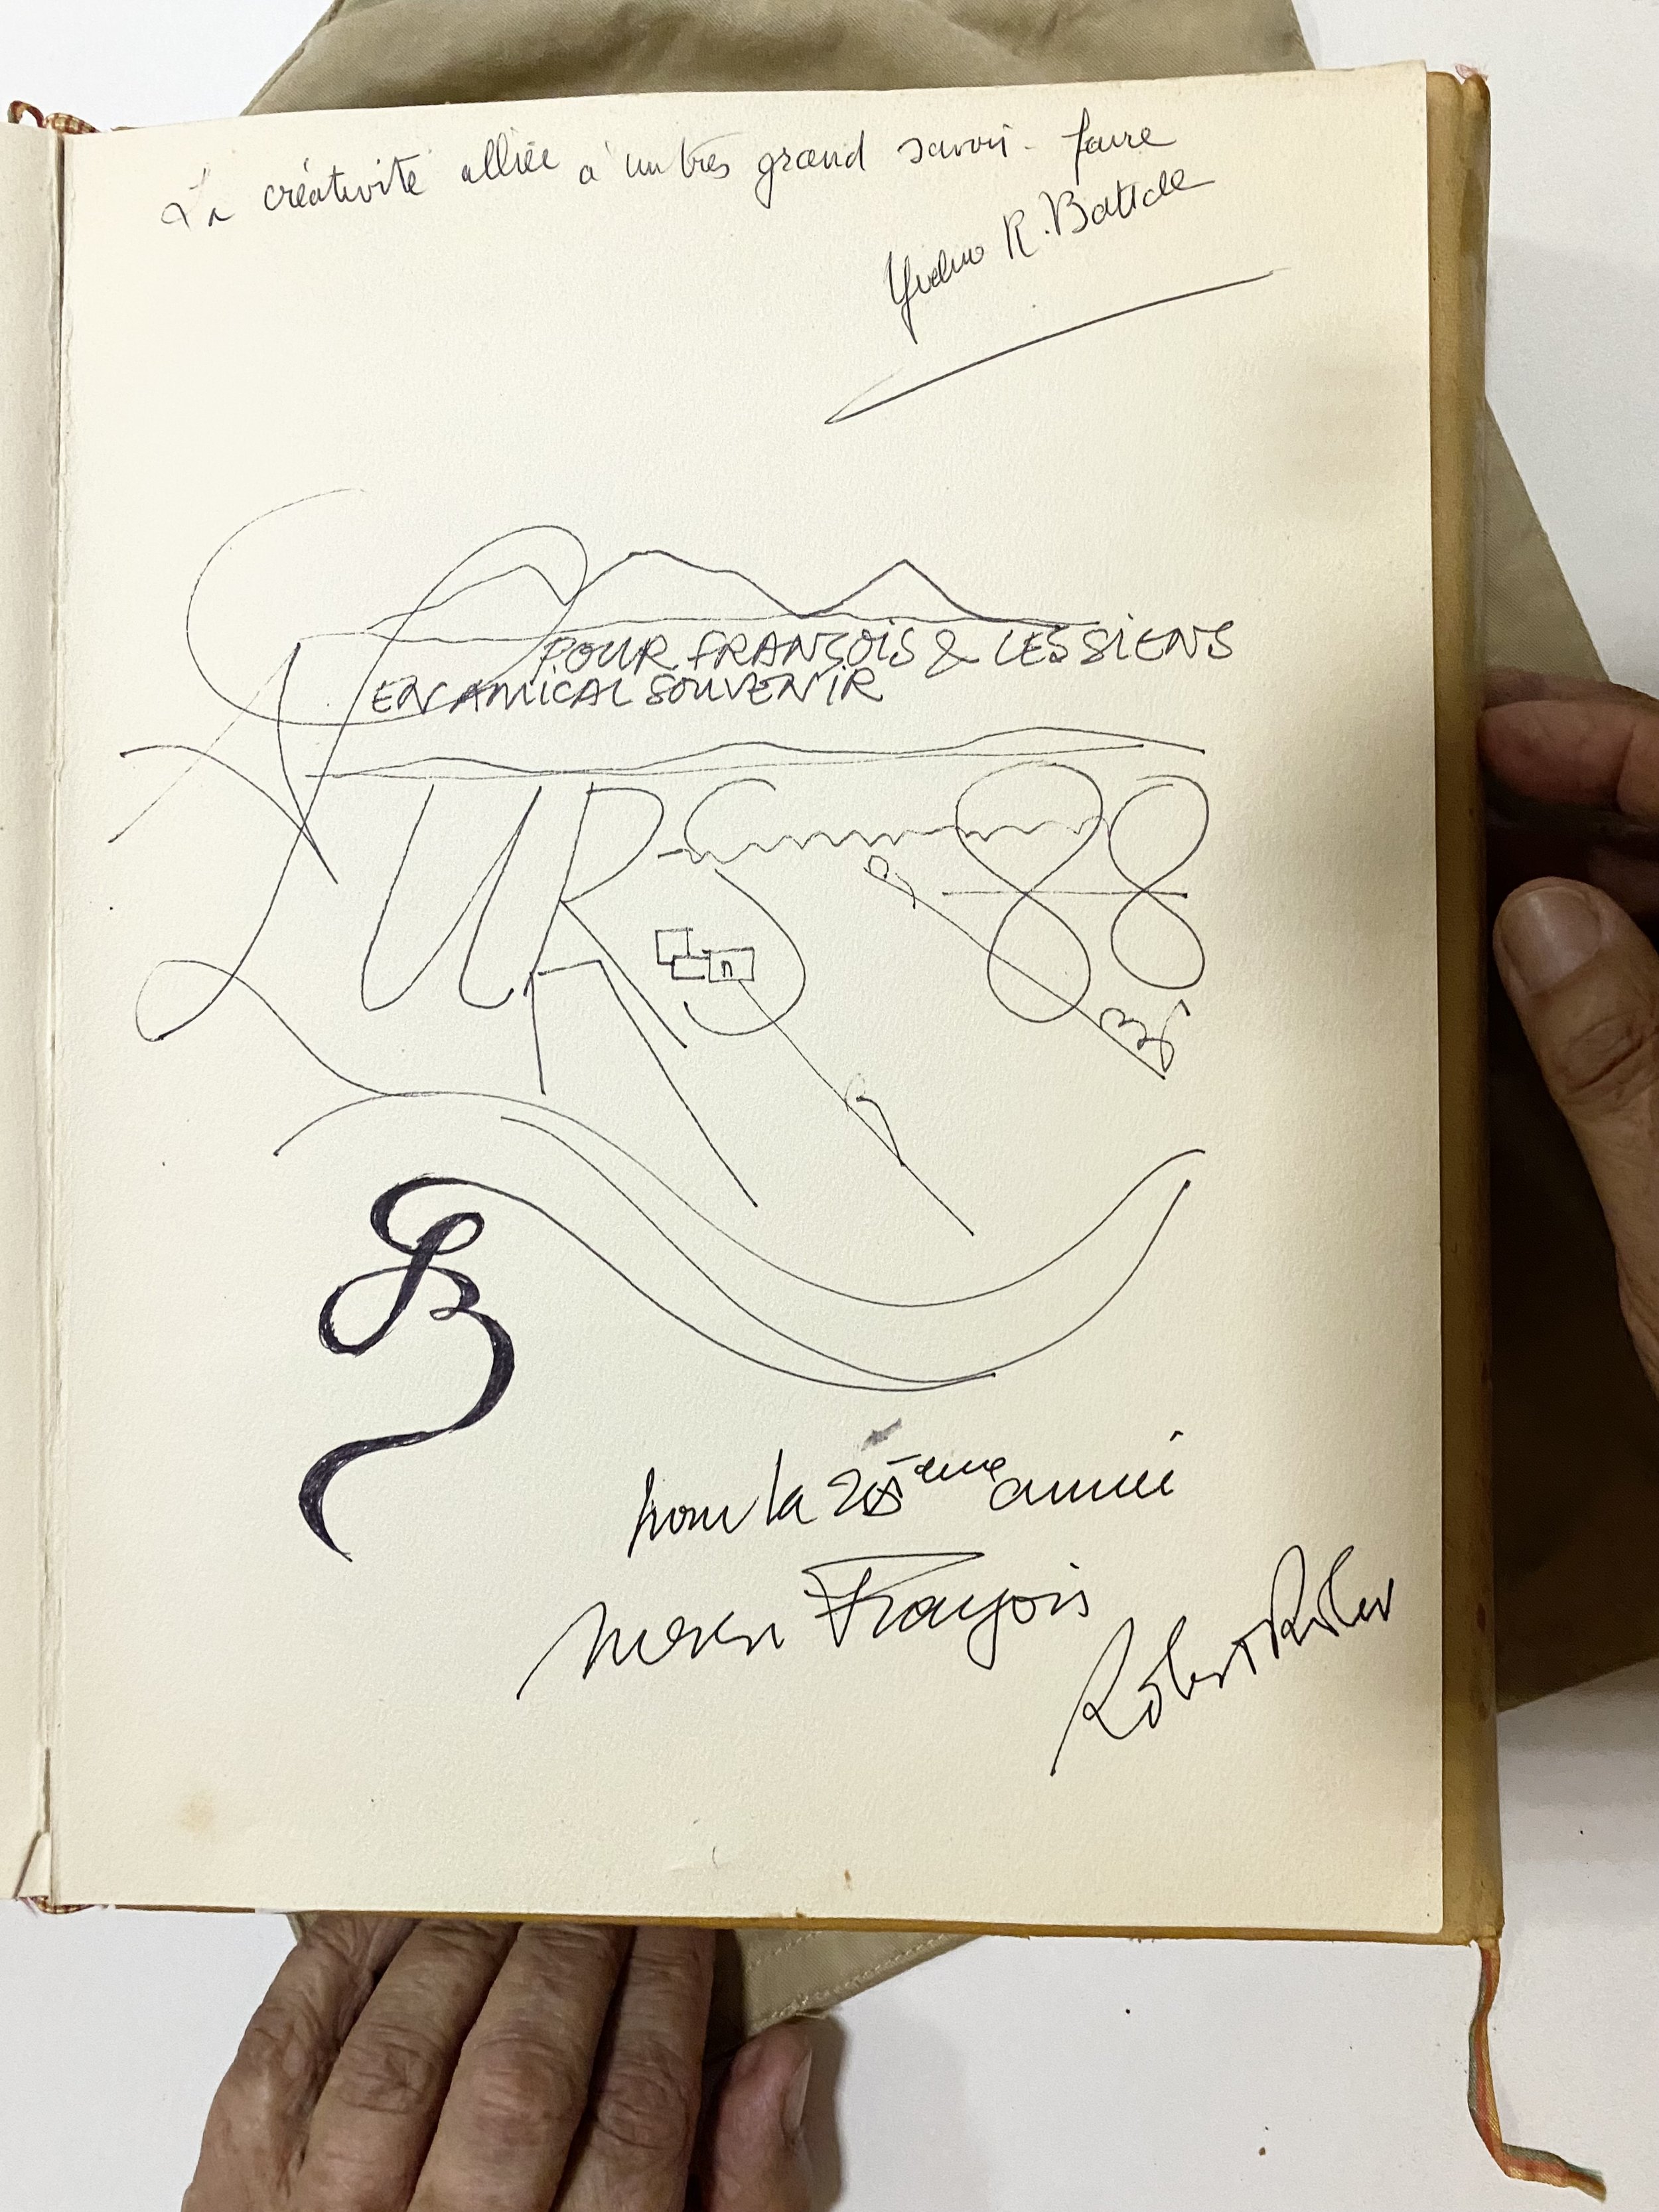 La créativité alliée à un très grand savoir-faire
R. Battde
POUR FRANÇOIS & LES SIENS
EN AMICAL SOUVENIR
LURS 88
pour la 20ème année
merci François
Robert